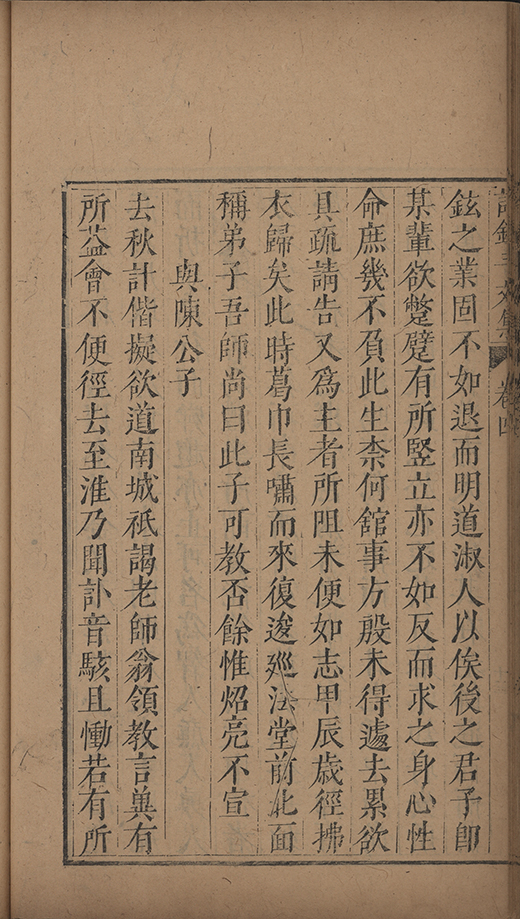 文集 卷四
鉉之業固不如退而明道淑人以俟後之君子即
某輩欲蹩躄有所竪立亦不如反而求之身心性
命庶幾不負此生柰何舘事方殷未得遽去累欲
具疏請告又爲主者所阻未便如志甲辰歳徑拂
衣歸矣此時葛巾長嘯而來復逡廵法堂前北面
稱弟子吾師尚曰此子可教否餘惟炤亮不宣
與陳公子
去秋計偕擬欲道南城祗謁老師翁領教言兾有
所益會不便徑去至淮乃聞訃音駭且慟若有所